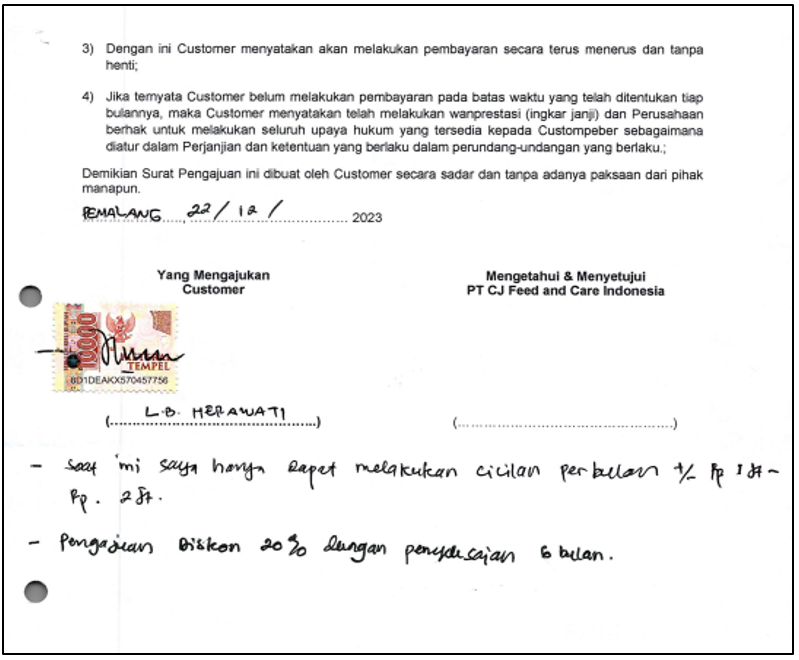 3) Dengan ini Customer menyatakan akan melakukan pembayaran secara terus menerus dan tanpa
henti;
4) Jika ternyata Customer belum melakukan pembayaran pada batas waktu yang telah ditentukan tiap
bulannya, maka Customer menyatakan telah melakukan wanprestasi (ingkar janji) dan Perusahaan
berhak untuk melakukan seluruh upaya hukum yang tersedia kepada Custompeber sebagaimana
diatur dalam Perjanjian dan ketentuan yang berlaku dalam perundang-undangan yang berlaku.;
Demikian Surat Pengajuan ini dibuat oleh Customer secara sadar dan tanpa adanya paksaan dari pihak
manapun.
PEMALANG, 22/12/ 2023
Yang Mengajukan
Customer
Mengetahui & Menyetujui
PT CJ Feed and Care Indonesia
10000
TEMPEL
8D1DEAKX570457756
(L.B. HERAWATI)
(........................................................)
- Saat ini saya hanya dapat melakukan cicilan perbulan +/- Rp 1 Jt -
Rp. 2 Jt.
- Pengajuan Diskon 20% dengan penyelesaian 6 bulan.